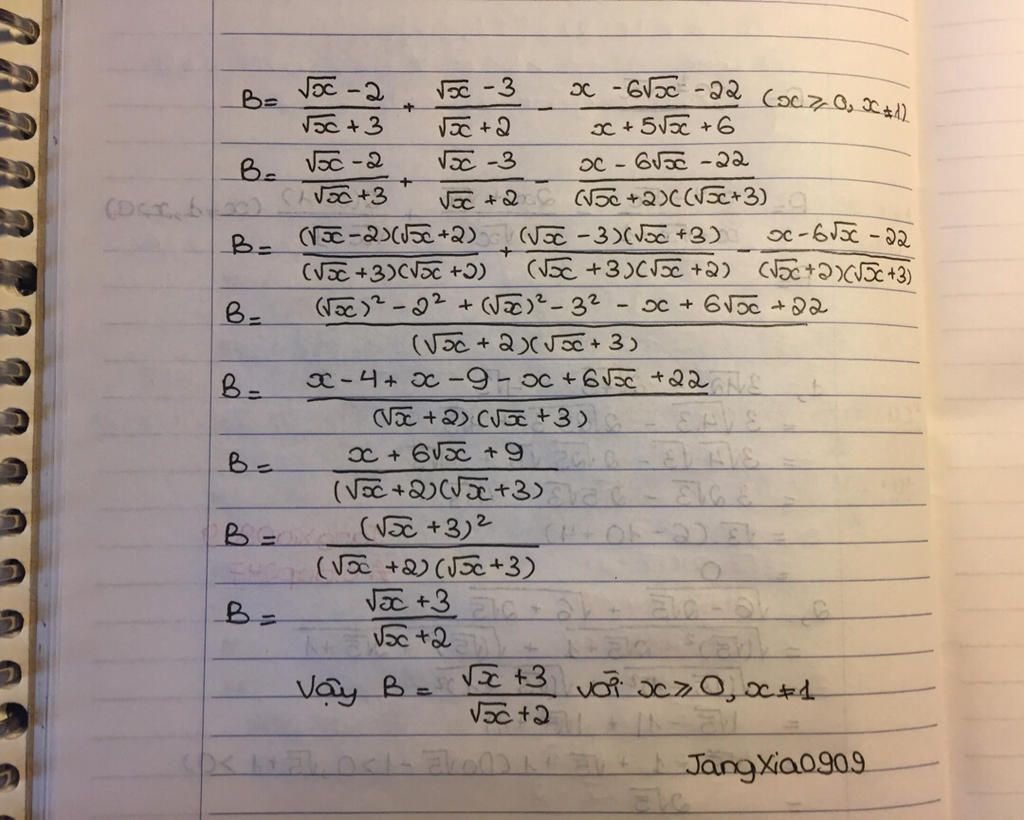 B = (√x - 2)/(√x + 3) + (√x - 3)/(√x + 2) - (x - 6√x - 22)/(x + 5√x + 6) (x ≥ 0, x ≠ 1)
B = (√x - 2)/(√x + 3) + (√x - 3)/(√x + 2) - (x - 6√x - 22)/((√x + 2)((√x + 3)
B = (√x - 2)(√x + 2)/(√x + 3)(√x + 2) + (√x - 3)(√x + 3)/(√x + 3)(√x + 2) - (x - 6√x - 22)/(√x + 2)(√x + 3)
B = ((√x)² - 2² + (√x)² - 3² - x + 6√x + 22)/(√x + 2)(√x + 3)
B = (x - 4 + x - 9 - x + 6√x + 22)/(√x + 2)(√x + 3)
B = (x + 6√x + 9)/(√x + 2)(√x + 3)
B = (√x + 3)²/(√x + 2)(√x + 3)
B = (√x + 3)/(√x + 2)
Vậy B = (√x + 3)/(√x + 2) với x ≥ 0, x ≠ 1
JangXia0909